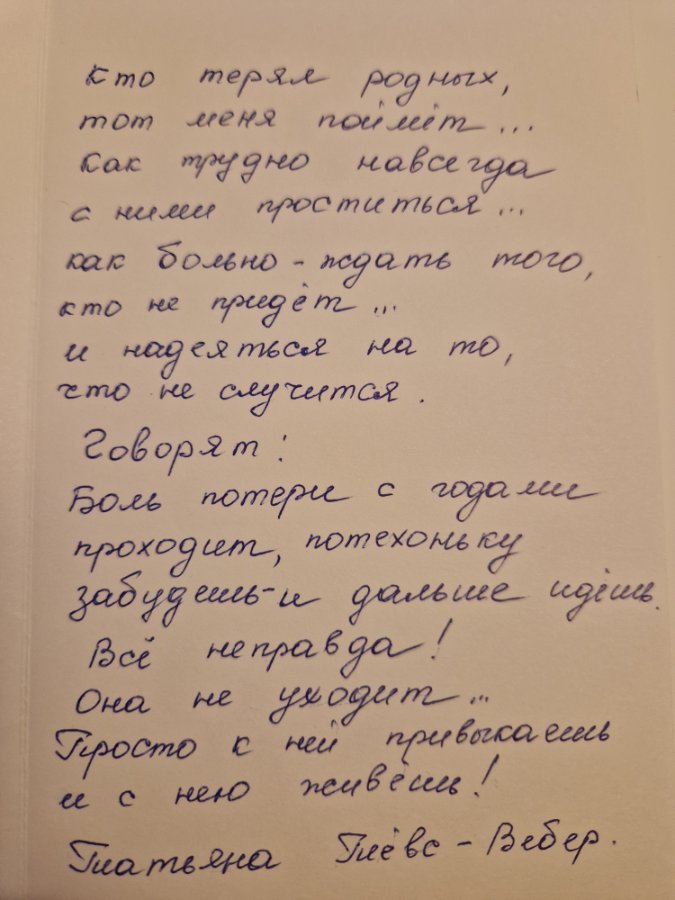 Кто терял родных,
тот меня поймёт...
Как трудно навсегда
с ними проститься...
как больно - ждать того,
кто не придёт...
и надеяться на то,
что не случится.
Говорят:
Боль потери с годами
проходит, потехоньку
забудешь - и дальше идёшь.
Всё неправда!
Она не уходит...
Просто к ней привыкаешь
и с нею живёшь!
Татьяна Тёвс - Вебер.